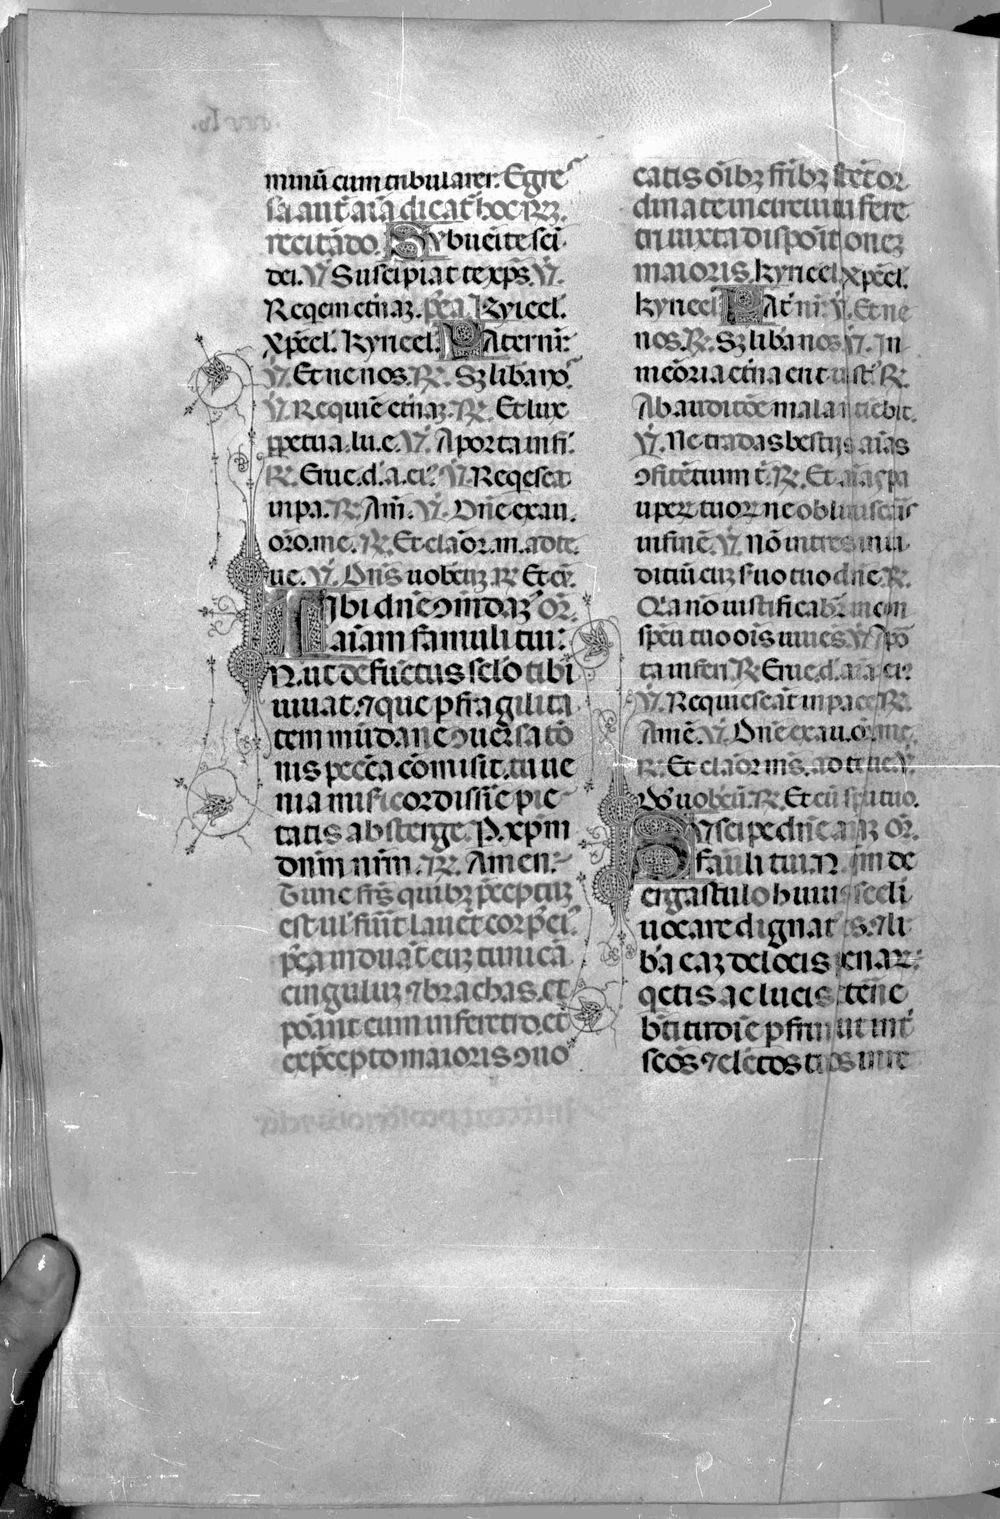 minū cum tribularer. Egre
sa aūt aīa dicat̄ hoc ℞.
recitādo. Sybuenite sc̄i
dei. ℣ Suscipiat te xp̄s. ℣.
Reqem etn̄aʒ. p̄ea Kyrieel.
Xp̄eel. Kyrieel. Pater nr̄:
℣. Et ne nos. ℞. Sʒ libā nos̄.
℣. Requiē etn̄aʒ. ℞. Et lux
ꝑpetua. lu. e. ℣. A porta inf̄i.
℞. Erue. d. a. ei. ℣. Reqescat
in pa. ℞. Am̄. ℣. Dn̄e exau.
orō. me. ℞. Et clāor. m. ad te.
ue. ℣. Dn̄s uobcūʒ ℞ Et cū.
Tibi dn̄e ꝯmēdaʒ Or̄.
aīam famuli tui:
N. ut defūctus sclō tibi
uiuat. ⁊ que ꝑ fragilita
tem mūdane ꝯuersatō
nis peccā cōmisit. tu ue
nia misicordissīe pie
tatis absterge. P. xp̄m
dnm̄ nrm̄. ℞. Amen:
Tunc frs̄ quibʒ p̄ceptuʒ
est ul̄ fūit lauēt corꝑ ei.
p̄ea induāt euʒ tunicā
cinguluʒ ⁊ brachas. et
pōant eum in feretro. et
ex p̄cepto maioris ꝯuo
catis oībʒ frībʒ stēt or
dinate in circuitu fere
tri iuxta dispōitioneʒ
maioris. Kyrieel. Xp̄eel.
Kyrieel. Pat̄ nr̄: ℣. Et ne
nos. ℞. Sʒ libā nos. ℣. In
meōria etn̄a erit iust̄. ℞.
Ab auditōe mala n̄ tīebit.
℣. Ne tradas bestijs aīas
ꝯfitētium t̄. ℞. Et aīas pa
uperꝝ tuorꝝ ne obliuiscaris
in finē. ℣. Nō intres in iu
ditiū cuʒ suo tuo dn̄e. ℞.
Qra nō iustificabit̄ in con
spcū tuo oīs uiuēs. ℣. A por
ta inferi. ℞. Erue. d. aīaʒ ei:
℣. Requiescat in pace. ℞.
Amē. ℣. Dn̄e exau. or. me.
℞. Et clāor m̄s. ad te ue. ℣.
Dn̄s uobcū. ℞. Et cū sp̄u tuo.
Suscipe dn̄e aīaʒ Or̄.
fāuli tui. N. quā de
ergastulo huius seeli
uocare dignat̄ es. ⁊ li
bā eaʒ de locis penaꝝ:
qetis ac lucis etn̄e
bt̄itudīe ꝑfruat̄. ut int̄
scōs ⁊ elēctos tuos in re